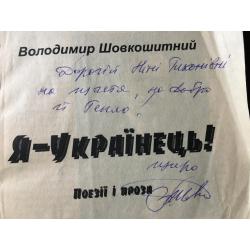 Володимир Шовкошитний
Дорогій Ніні Тихонівні
на щастя, до добра
й тепло!
Я-УКРАЇНЕЦЬ!
щиро
Поезії і проза